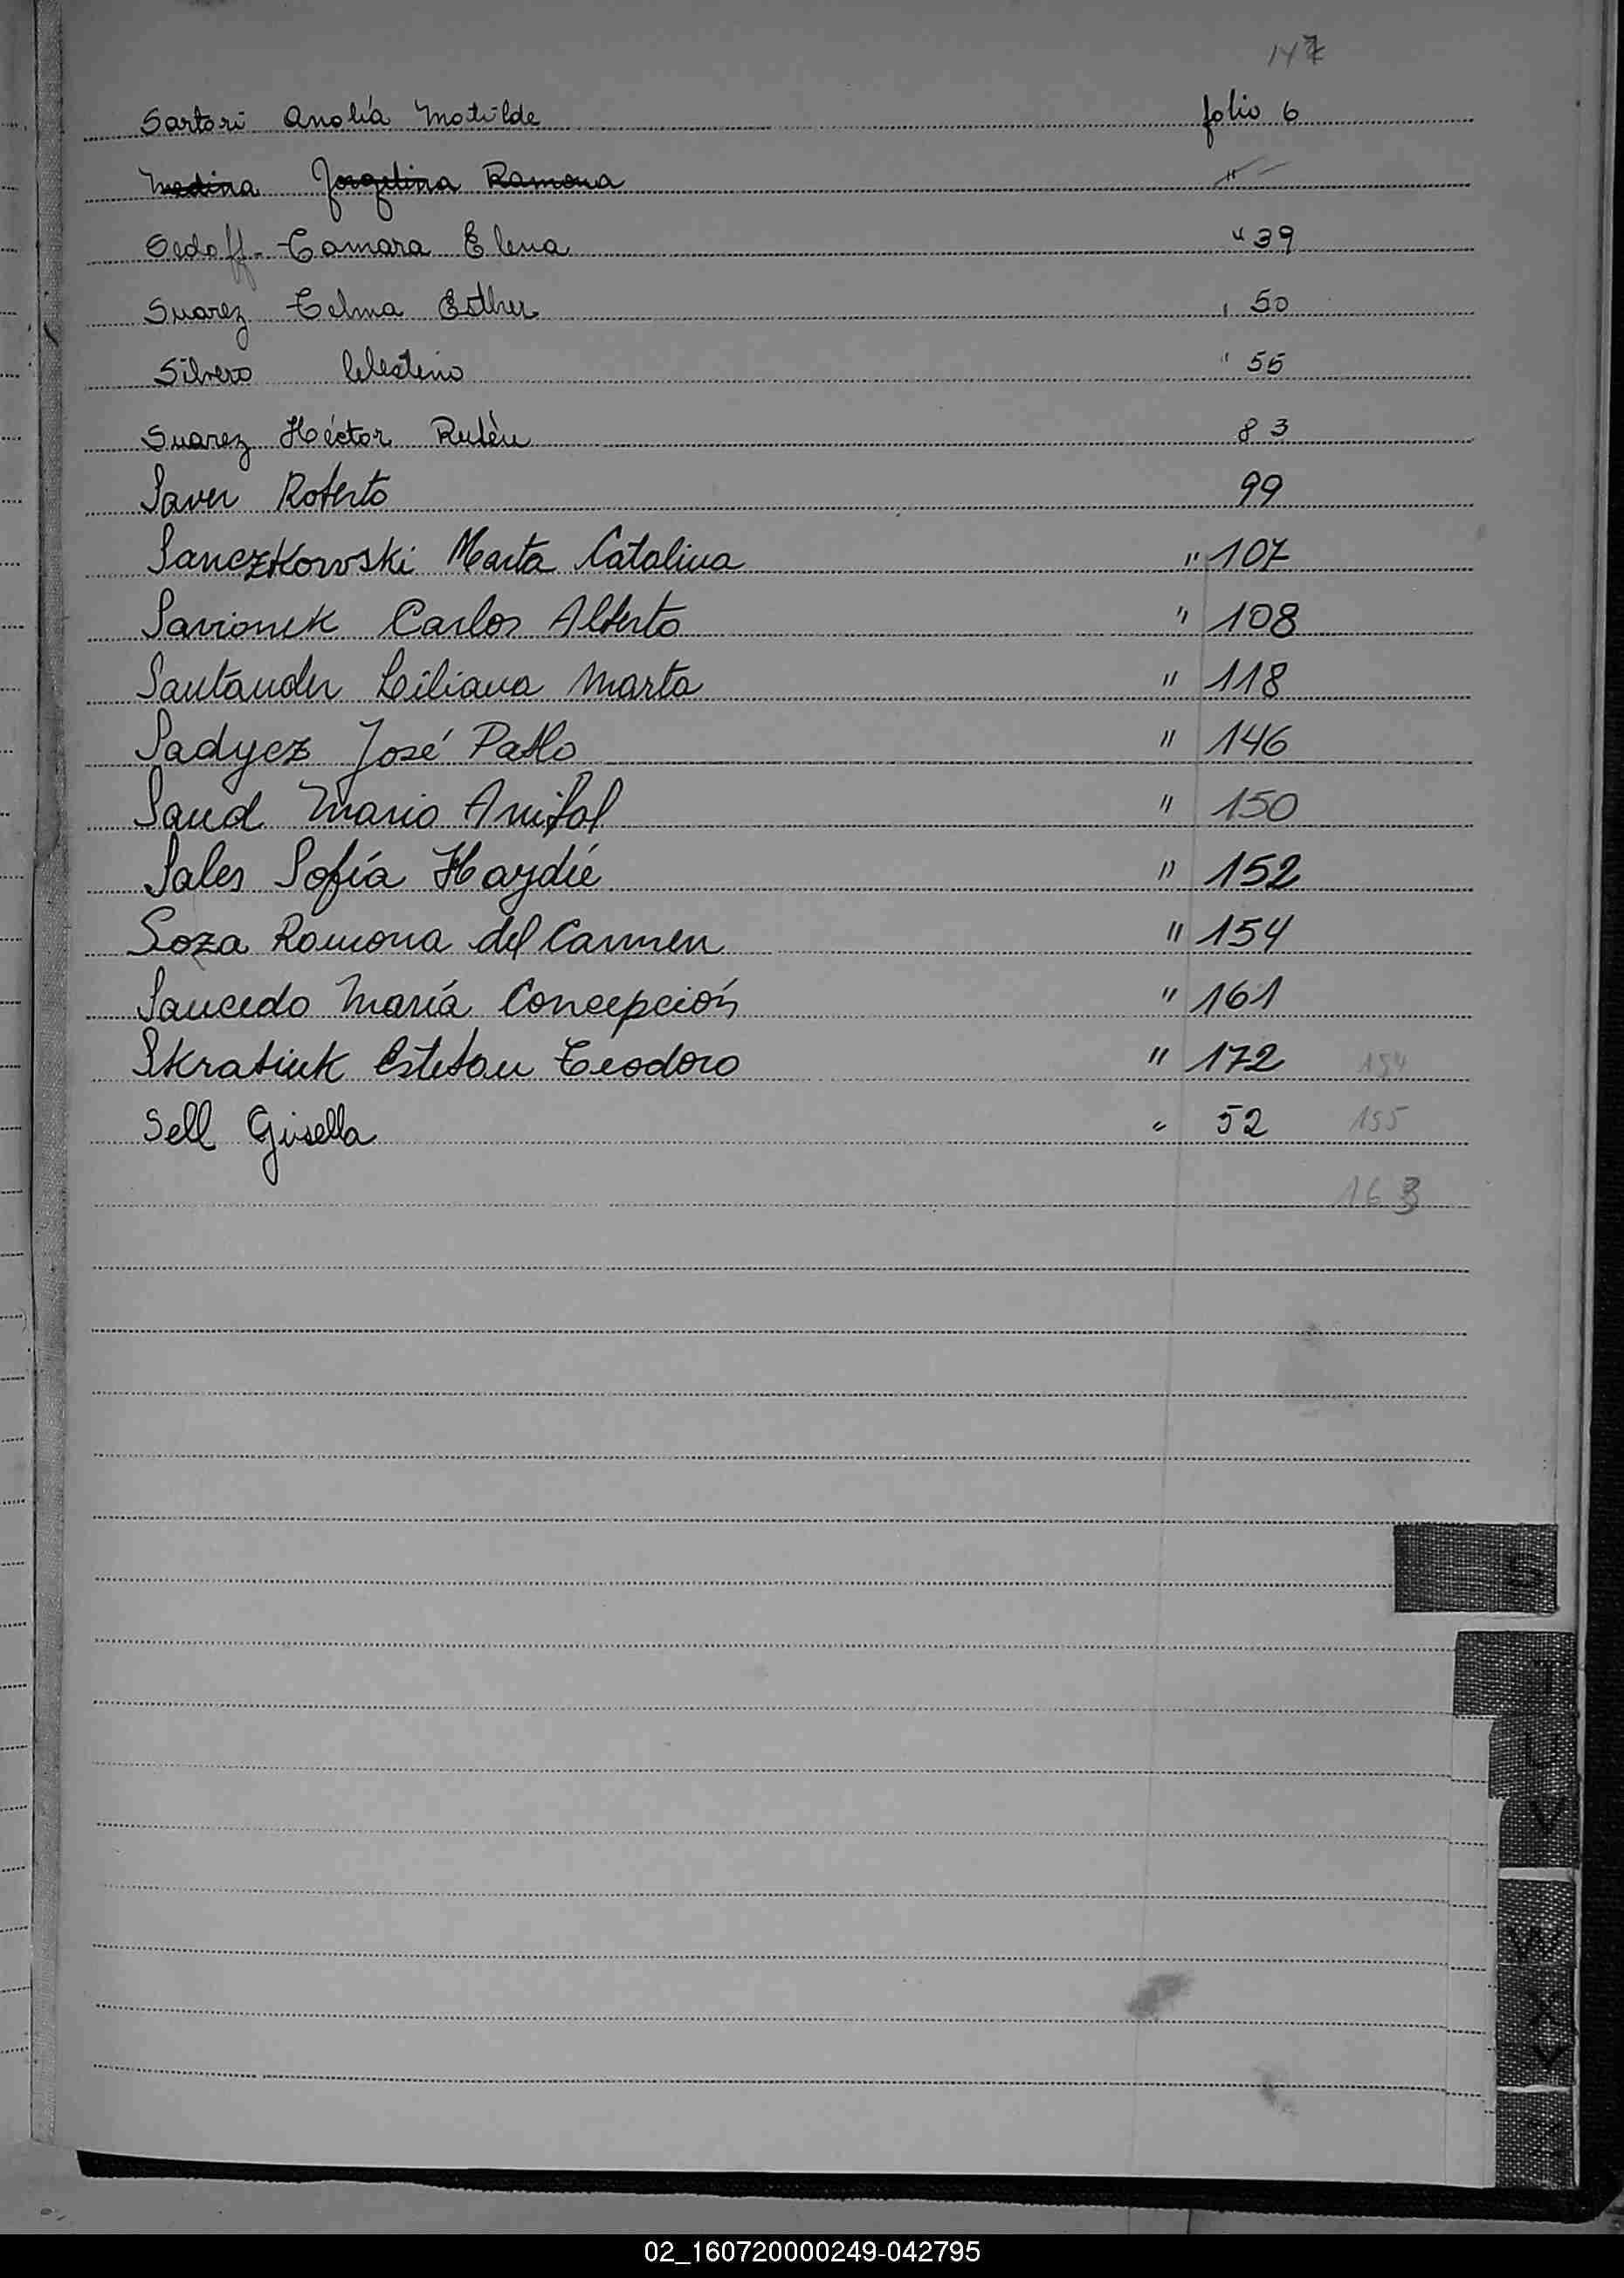 147
Sartori Analía Matilde folio 6
Medina Jorgelina Ramona "
Sedoff Tamara Elena " 39
Suarez Telma Esther " 50
Silvero Celestino " 56
Suarez Héctor Rubèn 83
Saver Roberto 99
Sanczkowski Marta Catalina " 107
Savionek Carlos Alberto " 108
Santánder Liliana Marta " 118
Sadycz José Pablo " 146
Saud Mario Anibal " 150
Sales Sofía Haydée " 152
Soza Ramona del Carmen " 154
Saucedo María Concepción " 161
Skrabiuk Esteban Teodoro " 172 154
Sell Gisella " 52 155
163
S
T
U
V
W
X
Y
02_160720000249-042795